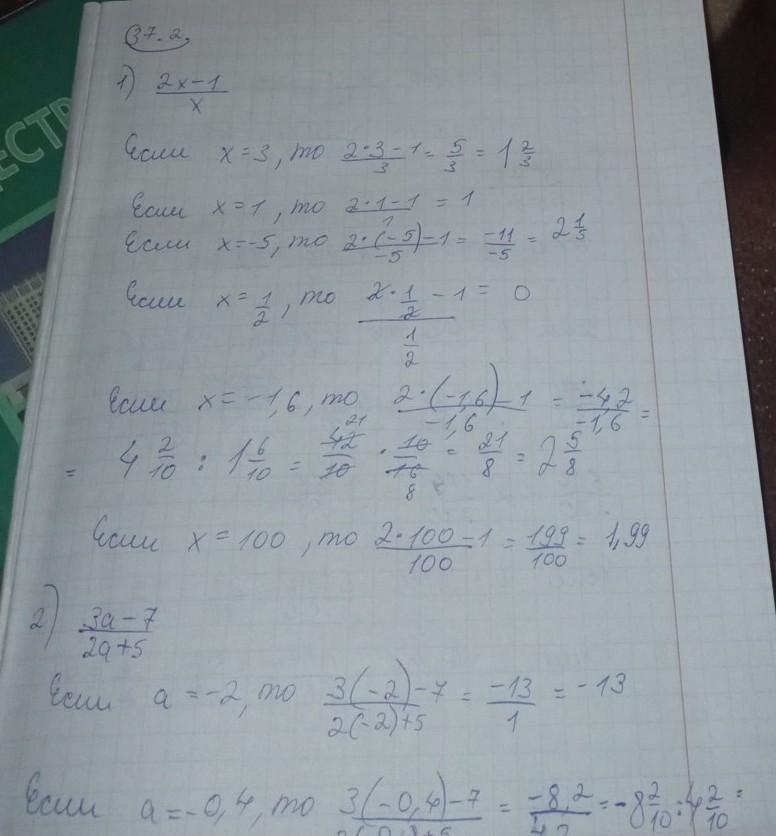 ЕСТВ
37.2.
1) (2x-1)/x
Если x=3, то (2·3-1)/3 = 5/3 = 1 2/3
Если x=1, то (2·1-1)/1 = 1
Если x=-5, то (2·(-5)-1)/-5 = -11/-5 = 2 1/5
Если x=1/2, то (2·1/2-1)/(1/2) = 0
Если x=-1,6, то (2·(-1,6)-1)/-1,6 = -4,2/-1,6 =
= 4 2/10 : 1 6/10 = 42/10 · 10/16 = 21/8 = 2 5/8
Если x=100, то (2·100-1)/100 = 199/100 = 1,99
2) (3a-7)/(2a+5)
Если a=-2, то (3(-2)-7)/(2(-2)+5) = -13/1 = -13
Если a=-0,4, то (3(-0,4)-7)/(2(-0,4)+5) = -8,2/4,2 = -8 2/10 : 4 2/10 =